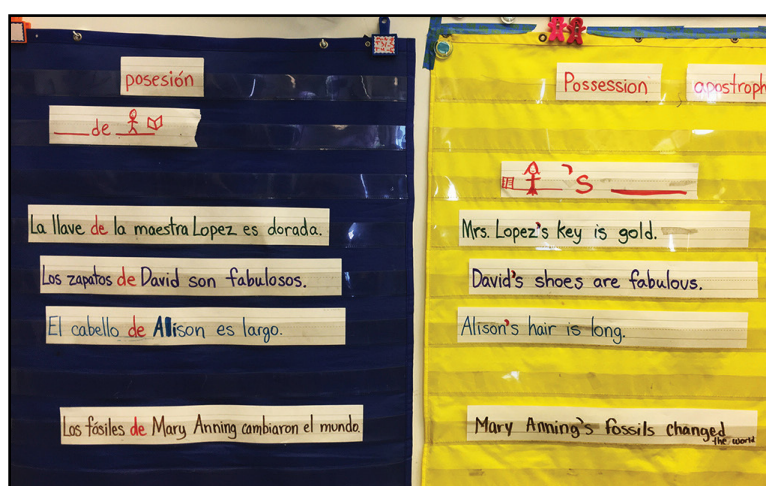 posesión
___ de ___
La llave de la maestra Lopez es dorada.
Los zapatos de David son fabulosos.
El cabello de Alison es largo.
Los fósiles de Mary Anning cambiaron el mundo.
Possession
apostroph
___'s ___
Mrs. Lopez's key is gold.
David's shoes are fabulous.
Alison's hair is long.
Mary Anning's fossils changed
the world